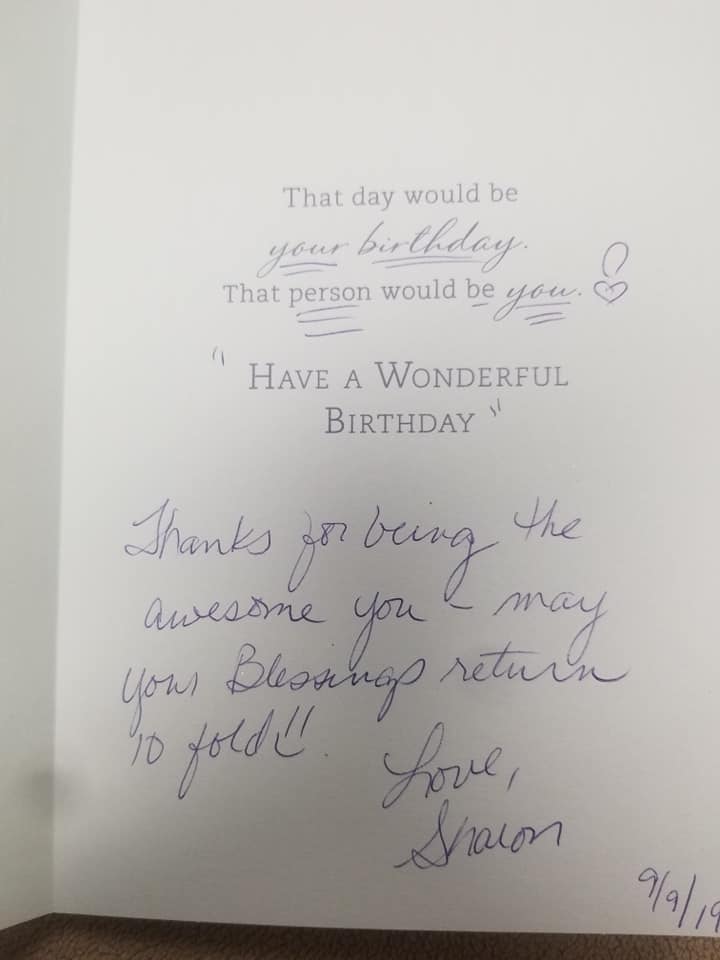 That day would be
your birthday.
That person would be you.
"HAVE A WONDERFUL
BIRTHDAY"
Thanks for being the
awesome you - may
your Blessings return
10 fold!!
Love,
Sharon
9/9/19